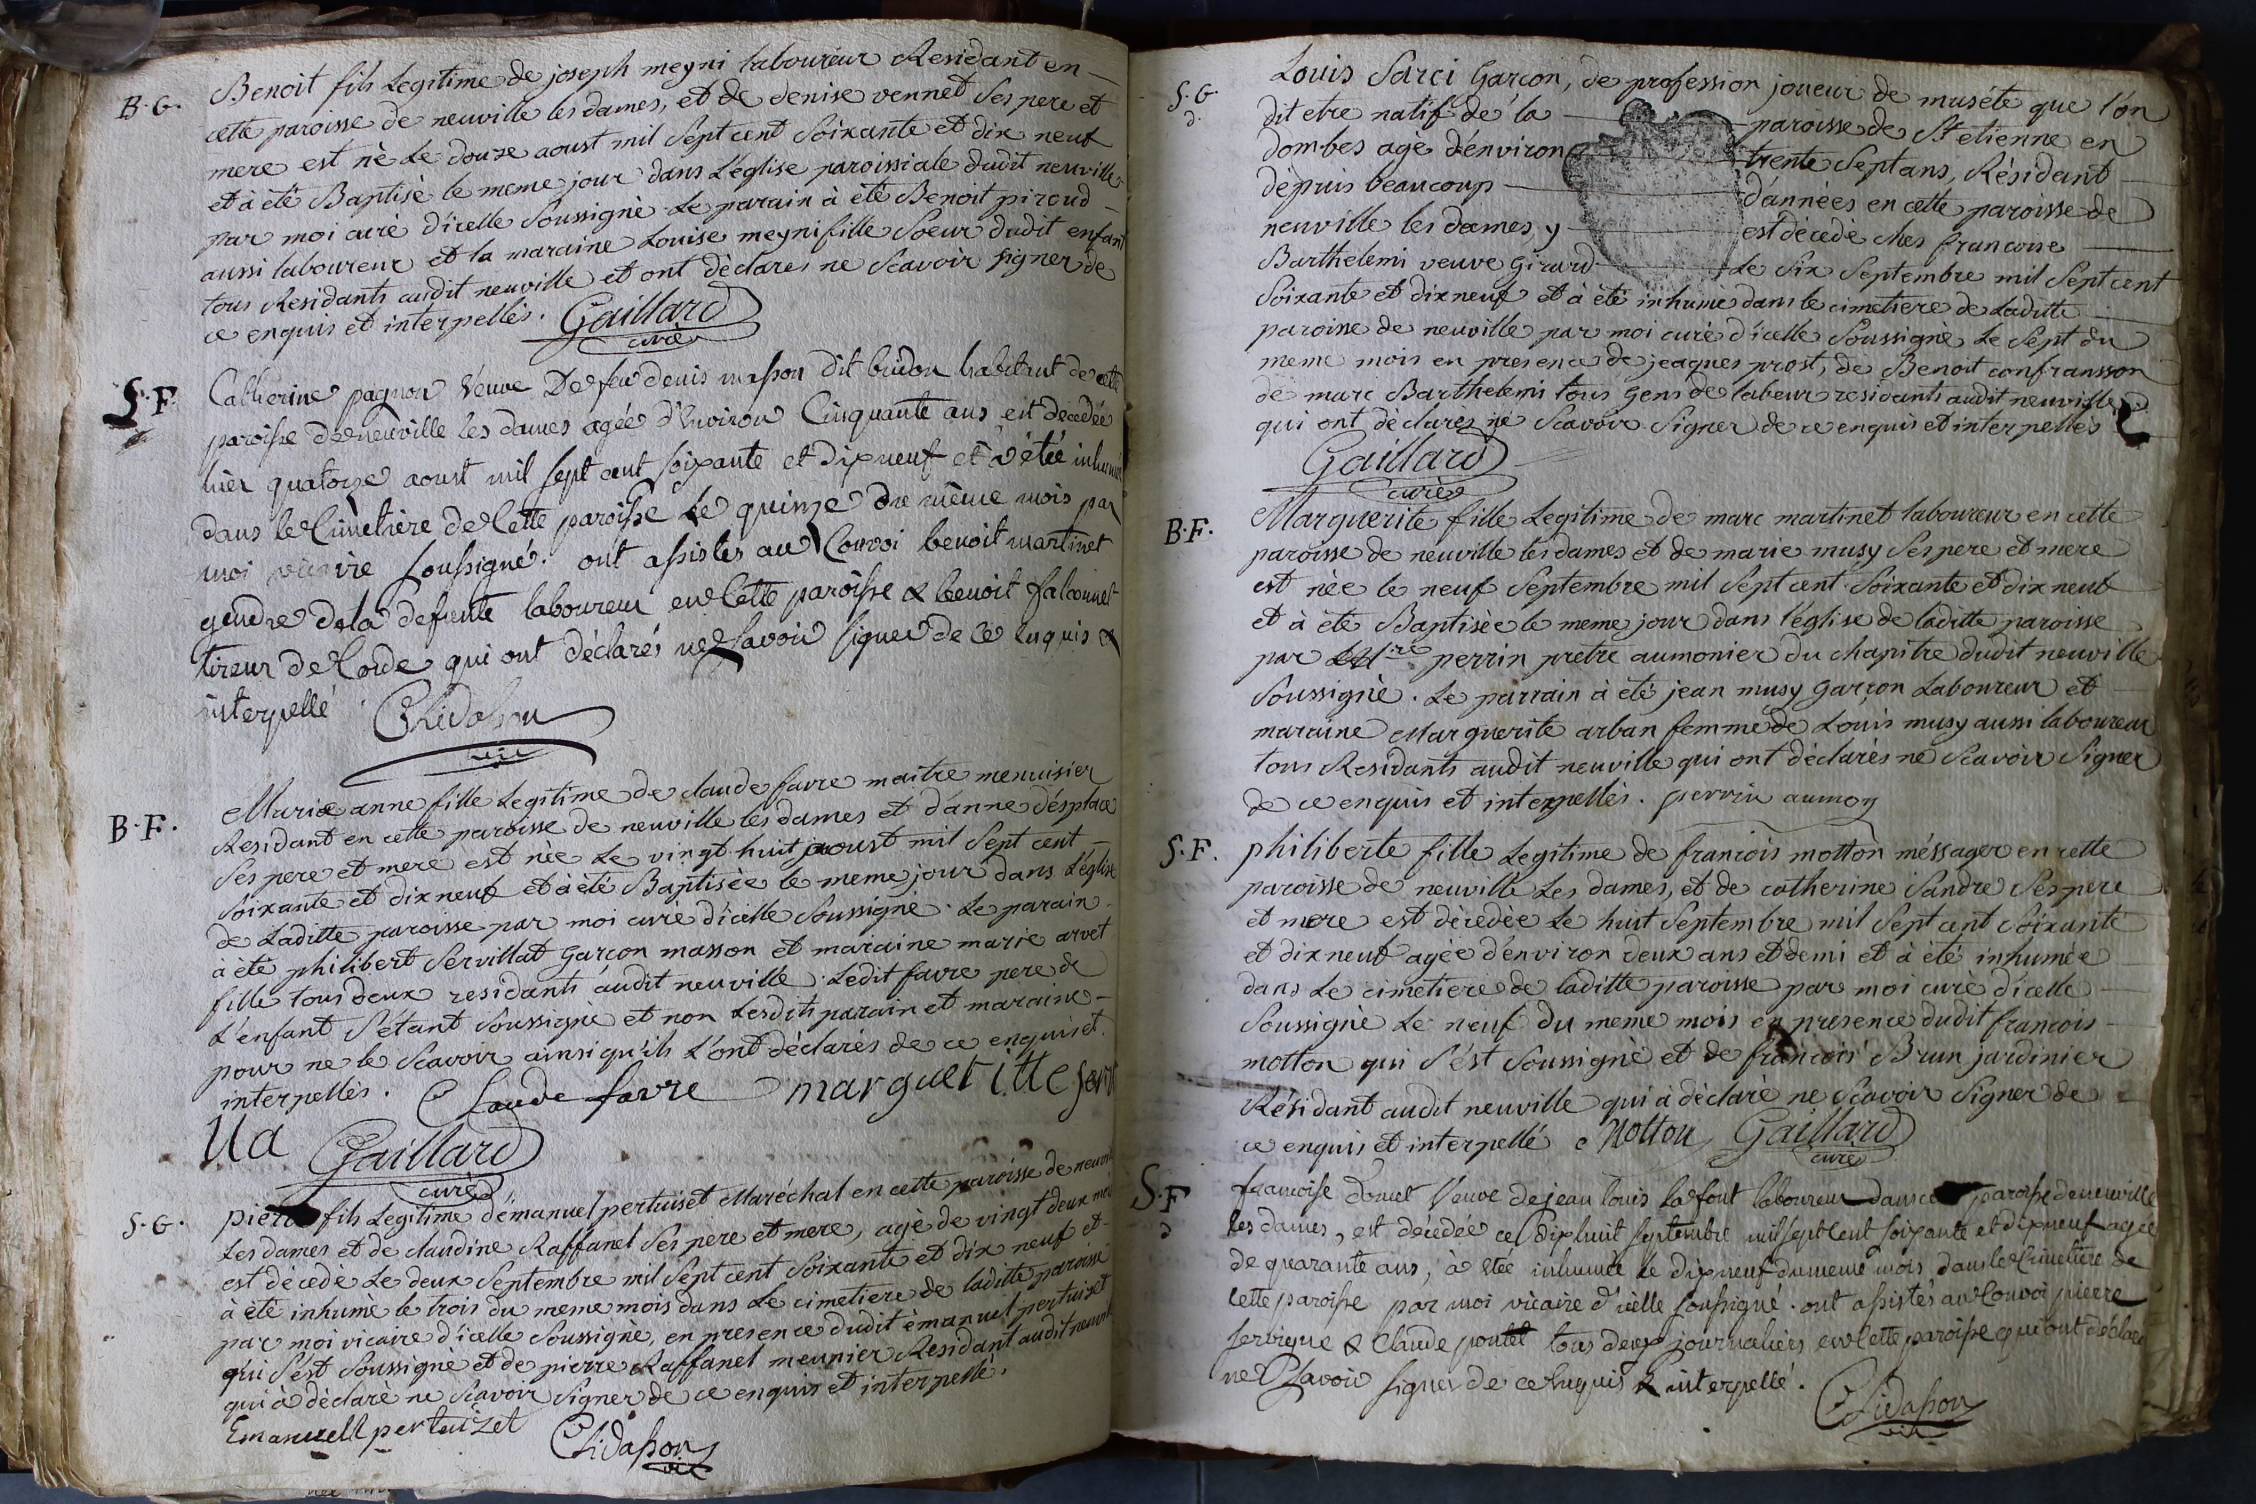 B. G.
Benoit fils Legitime de joseph meyni laboureur Residant en
cette paroisse de neuville les dames, et de denise vennet Ses pere et
mere est nè Le douze aoust mil Sept cent Soixante et dix neuf
et à étè Baptisè le meme jour dans L'église paroissiale dudit neuville
par moi curè d'icelle Soussignè. Le parain à étè Benoit piroud
aussi laboureur et la maraine Louise meyni fille Soeur dudit enfant
tous Residants audit neuville et ont dèclares ne Scavoir signer de
ce enquis et interpellès. Gaillard
curè
S. F.
Catherine pagnon Veuve De feu denis masson dit bidon habitant de cette
paroisse de neuville les dames agée d'Environ Cinquante ans est decedée
hier quatorze aoust mil sept cent soixante et dixneuf et à étée inhumée
dans le Cimetière de Cette paroisse Le quinze du même mois par
moi vicaire soussigné. ont assistés au Convoi benoit martinet
gendre de la defunte laboureur en Cette paroisse & benoit falconnet
tireur de Corde qui ont déclarés ne Savoir signer de Ce Enquis &
interpellé Chidasson
vic
B. F.
Marie anne fille Legitime de claude favre maitre menuisier
Residant en cette paroisse de neuville les dames et d'anne désplace
Ses pere et mere est nèe Le vingt huit aoust mil Sept cent
Soixante et dix neuf et à étè Baptisèe le meme jour dans L'église
de Laditte paroisse par moi curè d'icelle Soussignè. Le parain
à étè philibert Servillat Garçon masson et maraine marie arvet
fille tous deux residants audit neuville. Ledit favre pere de
L'enfant S'étant Soussignè et non Lesdits parain et maraine
pour ne le Scavoir ainsi qu'ils L'ont dèclarès de ce enquis et
interpellès. Claude favre margueritte serv
lla Gaillard
curè
S. G.
pierre fils Legitime d'émanuel pertuiset Maréchal en cette paroisse de neuville
Les dames et de claudine Raffanel Ses pere et mere, agè de vingt deux mois
est dècedè Le deux Septembre mil Sept cent Soixante et dix neuf et
à étè inhumè le trois du meme mois dans Le cimetiere de laditte paroisse
par moi vicaire d'icelle Soussignè, en presence dudit émanuel pertuiset
qui S'est Soussignè et de pierre Raffanel meunier Residant audit neuville
qui à dèclarè ne Scavoir Signer de ce enquis et interpellè.
Emanuell pertuizet Chidasson
vic
S. G.
d.
Louis Sarci Garçon, de profession joueur de muséte que l'on
dit etre natif de la paroisse de St etienne en
dombes agè d'énviron trente Sept ans, Résidant
dèpuis beaucoup d'années en cette paroisse de
neuville les dames y est dècedè ches francoise
Barthelemi veuve Girard Le Six Septembre mil Sept cent
Soixante et dix neuf et à étè inhumè dans le cimetiere de Laditte
paroisse de neuville par moi curè d'icelle Soussignè Le Sept du
meme mois en presence de jeaques prost, de Benoit confransson
de marc Barthelemi tous Gens de labeur residants audit neuville
qui ont dèclarès ne Scavoir Signer de ce enquis et interpellès
Gaillard
curè
B. F.
Marguerite fille Legitime de marc martinet laboureur en cette
paroisse de neuville les dames et de marie musy Ses pere et mere
est nèe le neuf Septembre mil Sept cent Soixante et dix neuf
et à étè Baptisèe le meme jour dans l'église de laditte paroisse
par Mire perrin pretre aumonier du chapitre dudit neuville
Soussignè. Le parrain à étè jean musy Garçon Laboureur et
maraine Marguerite arban femme de Louis musy aussi laboureur
tous Residants audit neuville qui ont dèclarès ne Scavoir Signer
de ce enquis et interpellès. perrin aumon
S. F.
philiberte fille Legitime de francois motton méssager en cette
paroisse de neuville Les dames, et de catherine Sandre Ses pere
et mere est dècedèe Le huit Septembre mil Sept cent Soixante
et dix neuf agèe d'énviron deux ans et demi et à étè inhumèe
dans Le cimetiere de laditte paroisse par moi curè d'icelle
Soussignè Le neuf du meme mois en presence dudit francois
motton qui S'ést Soussignè et de francois Brun jardinier
Résidant audit neuville qui à dèclarè ne Scavoir Signer de
ce enquis et interpellé Motton Gaillard
curè
S. F
d
francoise donet Veuve de jean louis Lafont laboureur dans ce paroisse de neuville
les dames, est décédée ce Dixhuit septembre mil sept Cent soixante et dixneuf agée
de quarante ans, à étée inhumée le dixneuf du meme mois dans le Cimetière de
Cette paroisse par moi vicaire d'icelle soussigné. ont assistés au Convoi pierre
servigne & Claude poutet tous deux journaliers en Cette paroisse qui ont déclaré
ne Savoir signer de ce Enquis & interpellé.
Chidasson
vic